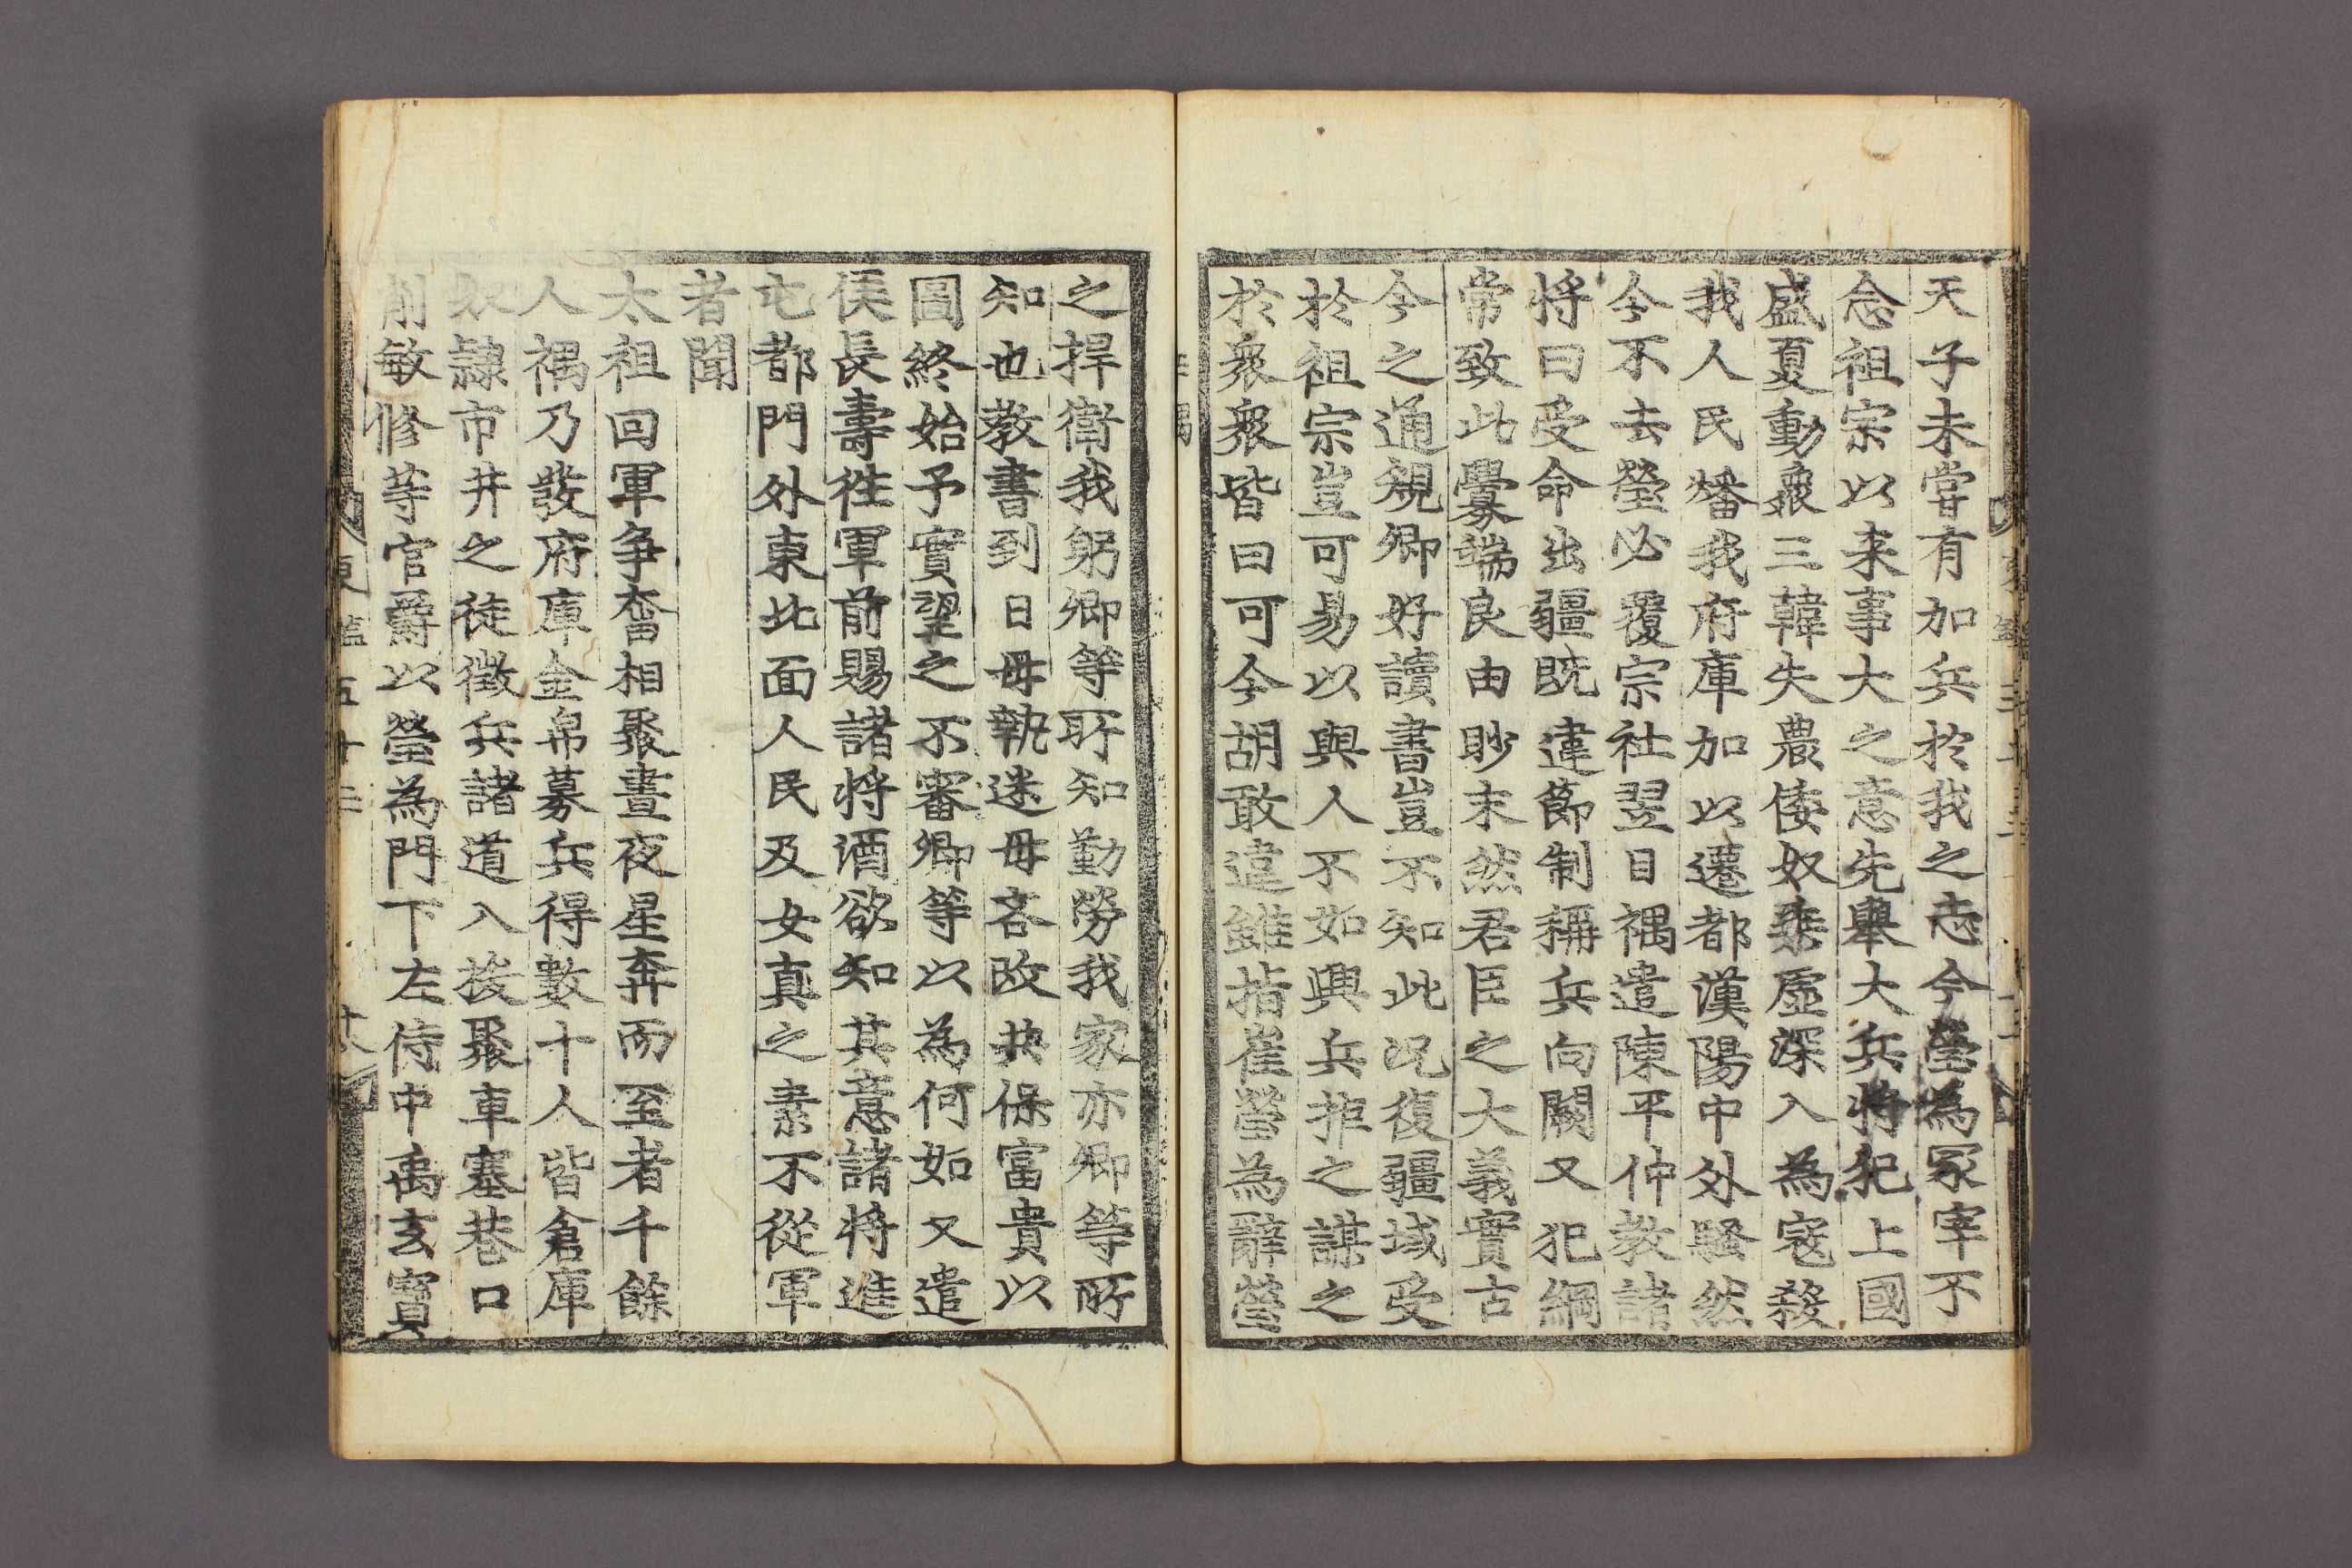 天子未嘗有加兵於我之志今瑩為冢宰不
念祖宗以来事大之意先擧大兵將犯上國
盛夏動衆三韓失農倭奴乘虛深入為寇殺
我人民燔我府庫加以遷都漢陽中外騷然
今不去瑩必覆宗社翌日禑遣陳平仲敎諸
将曰受命出疆既違節制稱兵向闕又犯綱
常致此釁端良由眇末然君臣之大義實古
今之通規卿好讀書豈不知此况復疆域受
於祖宗豈可易以與人不如興兵拒之謀之
於衆衆皆曰可今胡敢違雖指崔瑩為辭瑩
之捍衛我躬卿等所知勤勞我家亦卿等所
知也敎書到日毋執迷毋吝改共保富貴以
圖終始予實望之不審卿等以為何如又遣
偰長壽徃軍前賜諸将酒欲知其意諸将進
屯都門外東北面人民及女真之素不從軍
者聞
太祖回軍争奮相聚晝夜星奔而至者千餘
人禑乃發府庫金帛募兵得數十人皆倉庫
奴隷市井之徒徵兵諸道入援聚車塞巷口
削敏修等官爵以瑩為門下左侍中禹玄寶
東鑑五十三